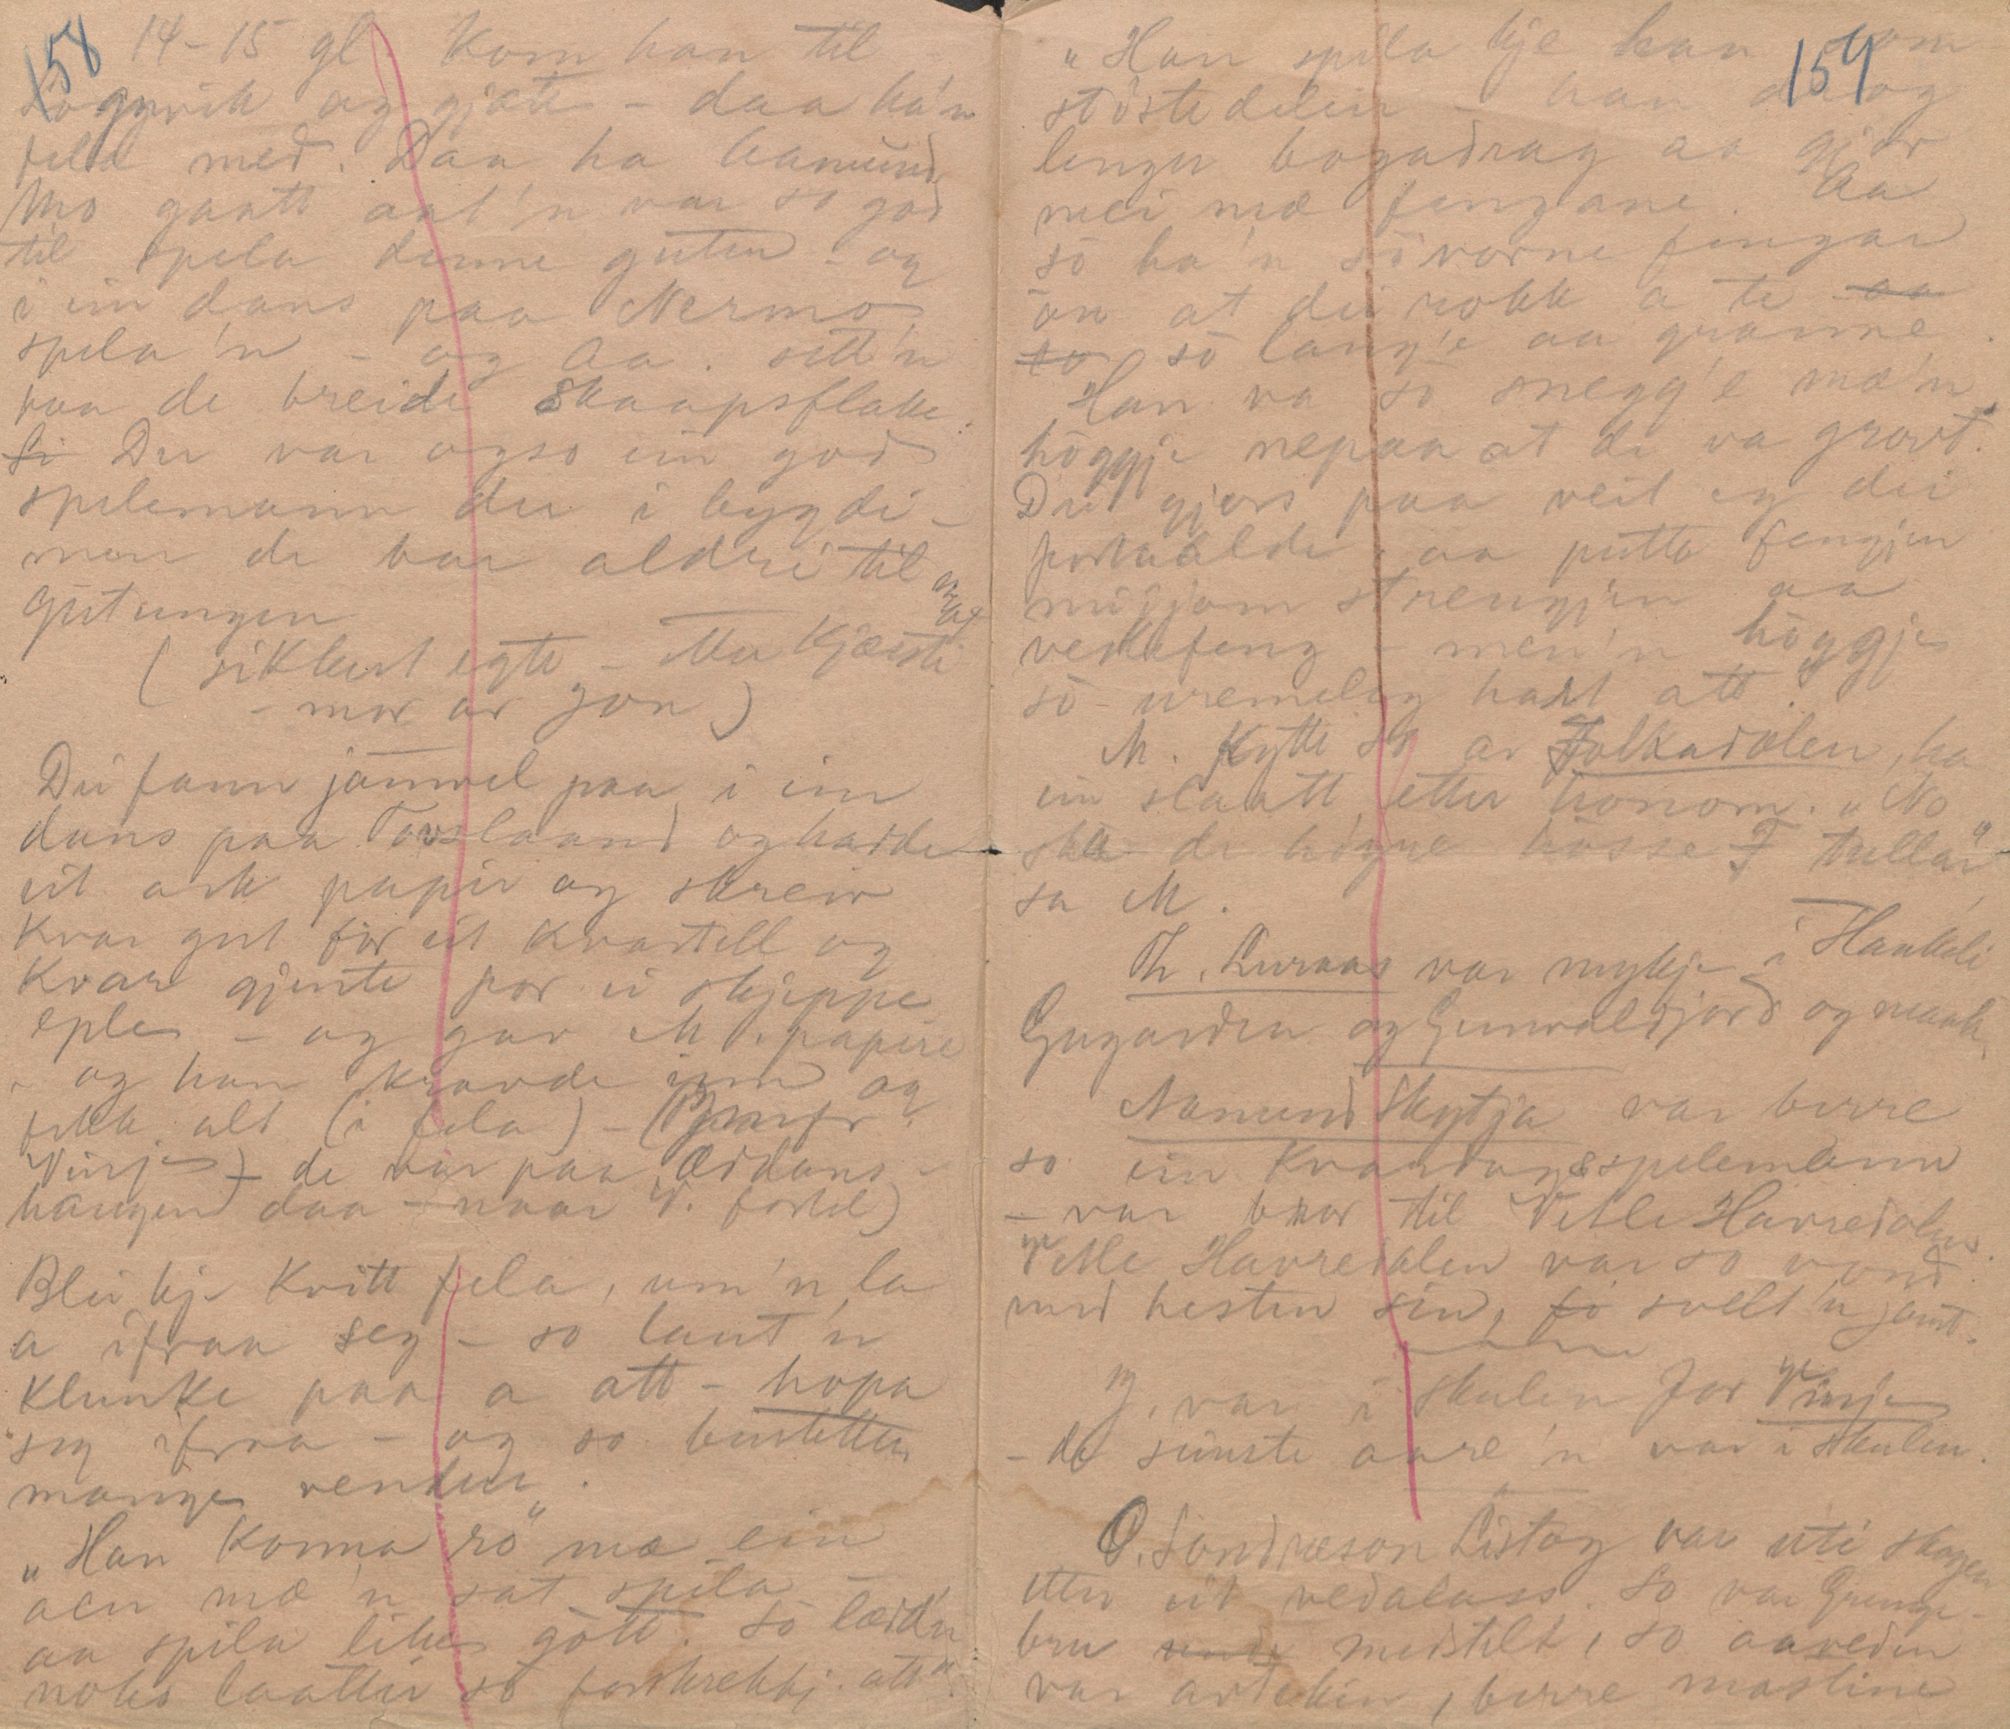 158
14-15 gl. kom han til
Loggvik og gjætte - daa ha'n
fela med. Daa ha Aamund
Mo gaatt att'n var so god
til spela denne guten - og
i ein dans paa Nermo
spela'n - og Aa. sett'n
paa de breide skaapsflake
Der var ogso ein god
spelemann der i bygdi -
men de bar aldri til
gutungen
(sikkert egte - Mor Kjersti
- mor ar Jon)
Dei fann jamvel paa i ein
dans paa Torslaand og hadde
eit ark papir og skreiv
kvar gut for eit kvartell og
kvar gjente for ei skjeppe
eple - og gav M. papire
- og han kravde inn og
fekk alt (i fela) - (
Vinje - de var paa
haugen daa - naar V. fortel)
Blei kje kvitt fela, um'n la
a ifraa seg - so laut'n
klunke paa a att - hopa
seg ifraa - og so burtetter
mange vendur.
"Han konna ro" mæ ein
aen mæ'n sat spila -
aa spila likes gott. So lærd'n
noks laattir so forskrekkj. att"
159
"Han spila kje han som
stöstedelen - han drog
lenger bogadrag aa gjor
mei mæ fengane. Aa
so ha'n sovorne fingar
ön at dei rokk a te aa
so so lang'e aa granne.
Han va so snegg'e mæ'n
höggje nepaa at de va grovt.
Dei gjers paa veit eg dei
forhalde aa putta fengjen
migjom strengjen aa
venkefeng - men'n höggje
so uremeleg hart att."
M. flytte so ar Folkadalen, ha
ein slaatt etter honom. "No
ska de höyre hosse F tullar"
sa M.
Th. Luraas var mykje i Haukeli
Gugarden og Gunvaldjord og
Aamund Skytja var berre
so ein kvardagsspelemann
- var bror til Vetle Havredalen.
Vetle Havredalen var so vond
med hesten sin, fo svelt'n jamt.
M. var i skulen for Vinje
- de siuste aare'n var i skulen.
O. Sondreson Listog var uti skogen
etter eit vedalass. So var Grunge-
bru medtelt, so aaveden
var, berre mastine